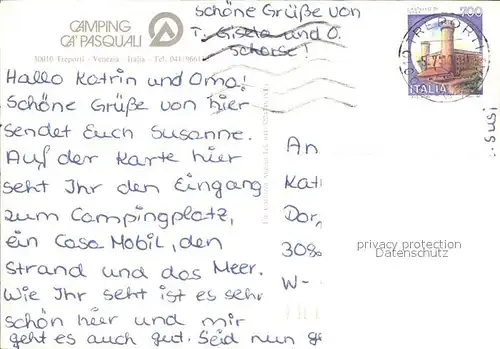 CAMPING
CA' PASQUALI
30010 Treporti - Venezia - Italia - Tel. 041/9661
Schöne Grüße von
T. Gisela und O.
Schorse!
700
TREPORTI
ITALIA
Hallo Katrin und Oma!
Schöne Grüße von hier
sendet Euch Susanne.
Auf der Karte hier
seht Ihr den Eingang
zum Campingplatz,
ein Casa Mobil, den
Strand und das Meer.
Wie Ihr seht ist es sehr
schön hier und mir
geht es auch gut. Seid nun ge
An
Kati
Dor
308
W-
privacy protection
Datenschutz
Susi